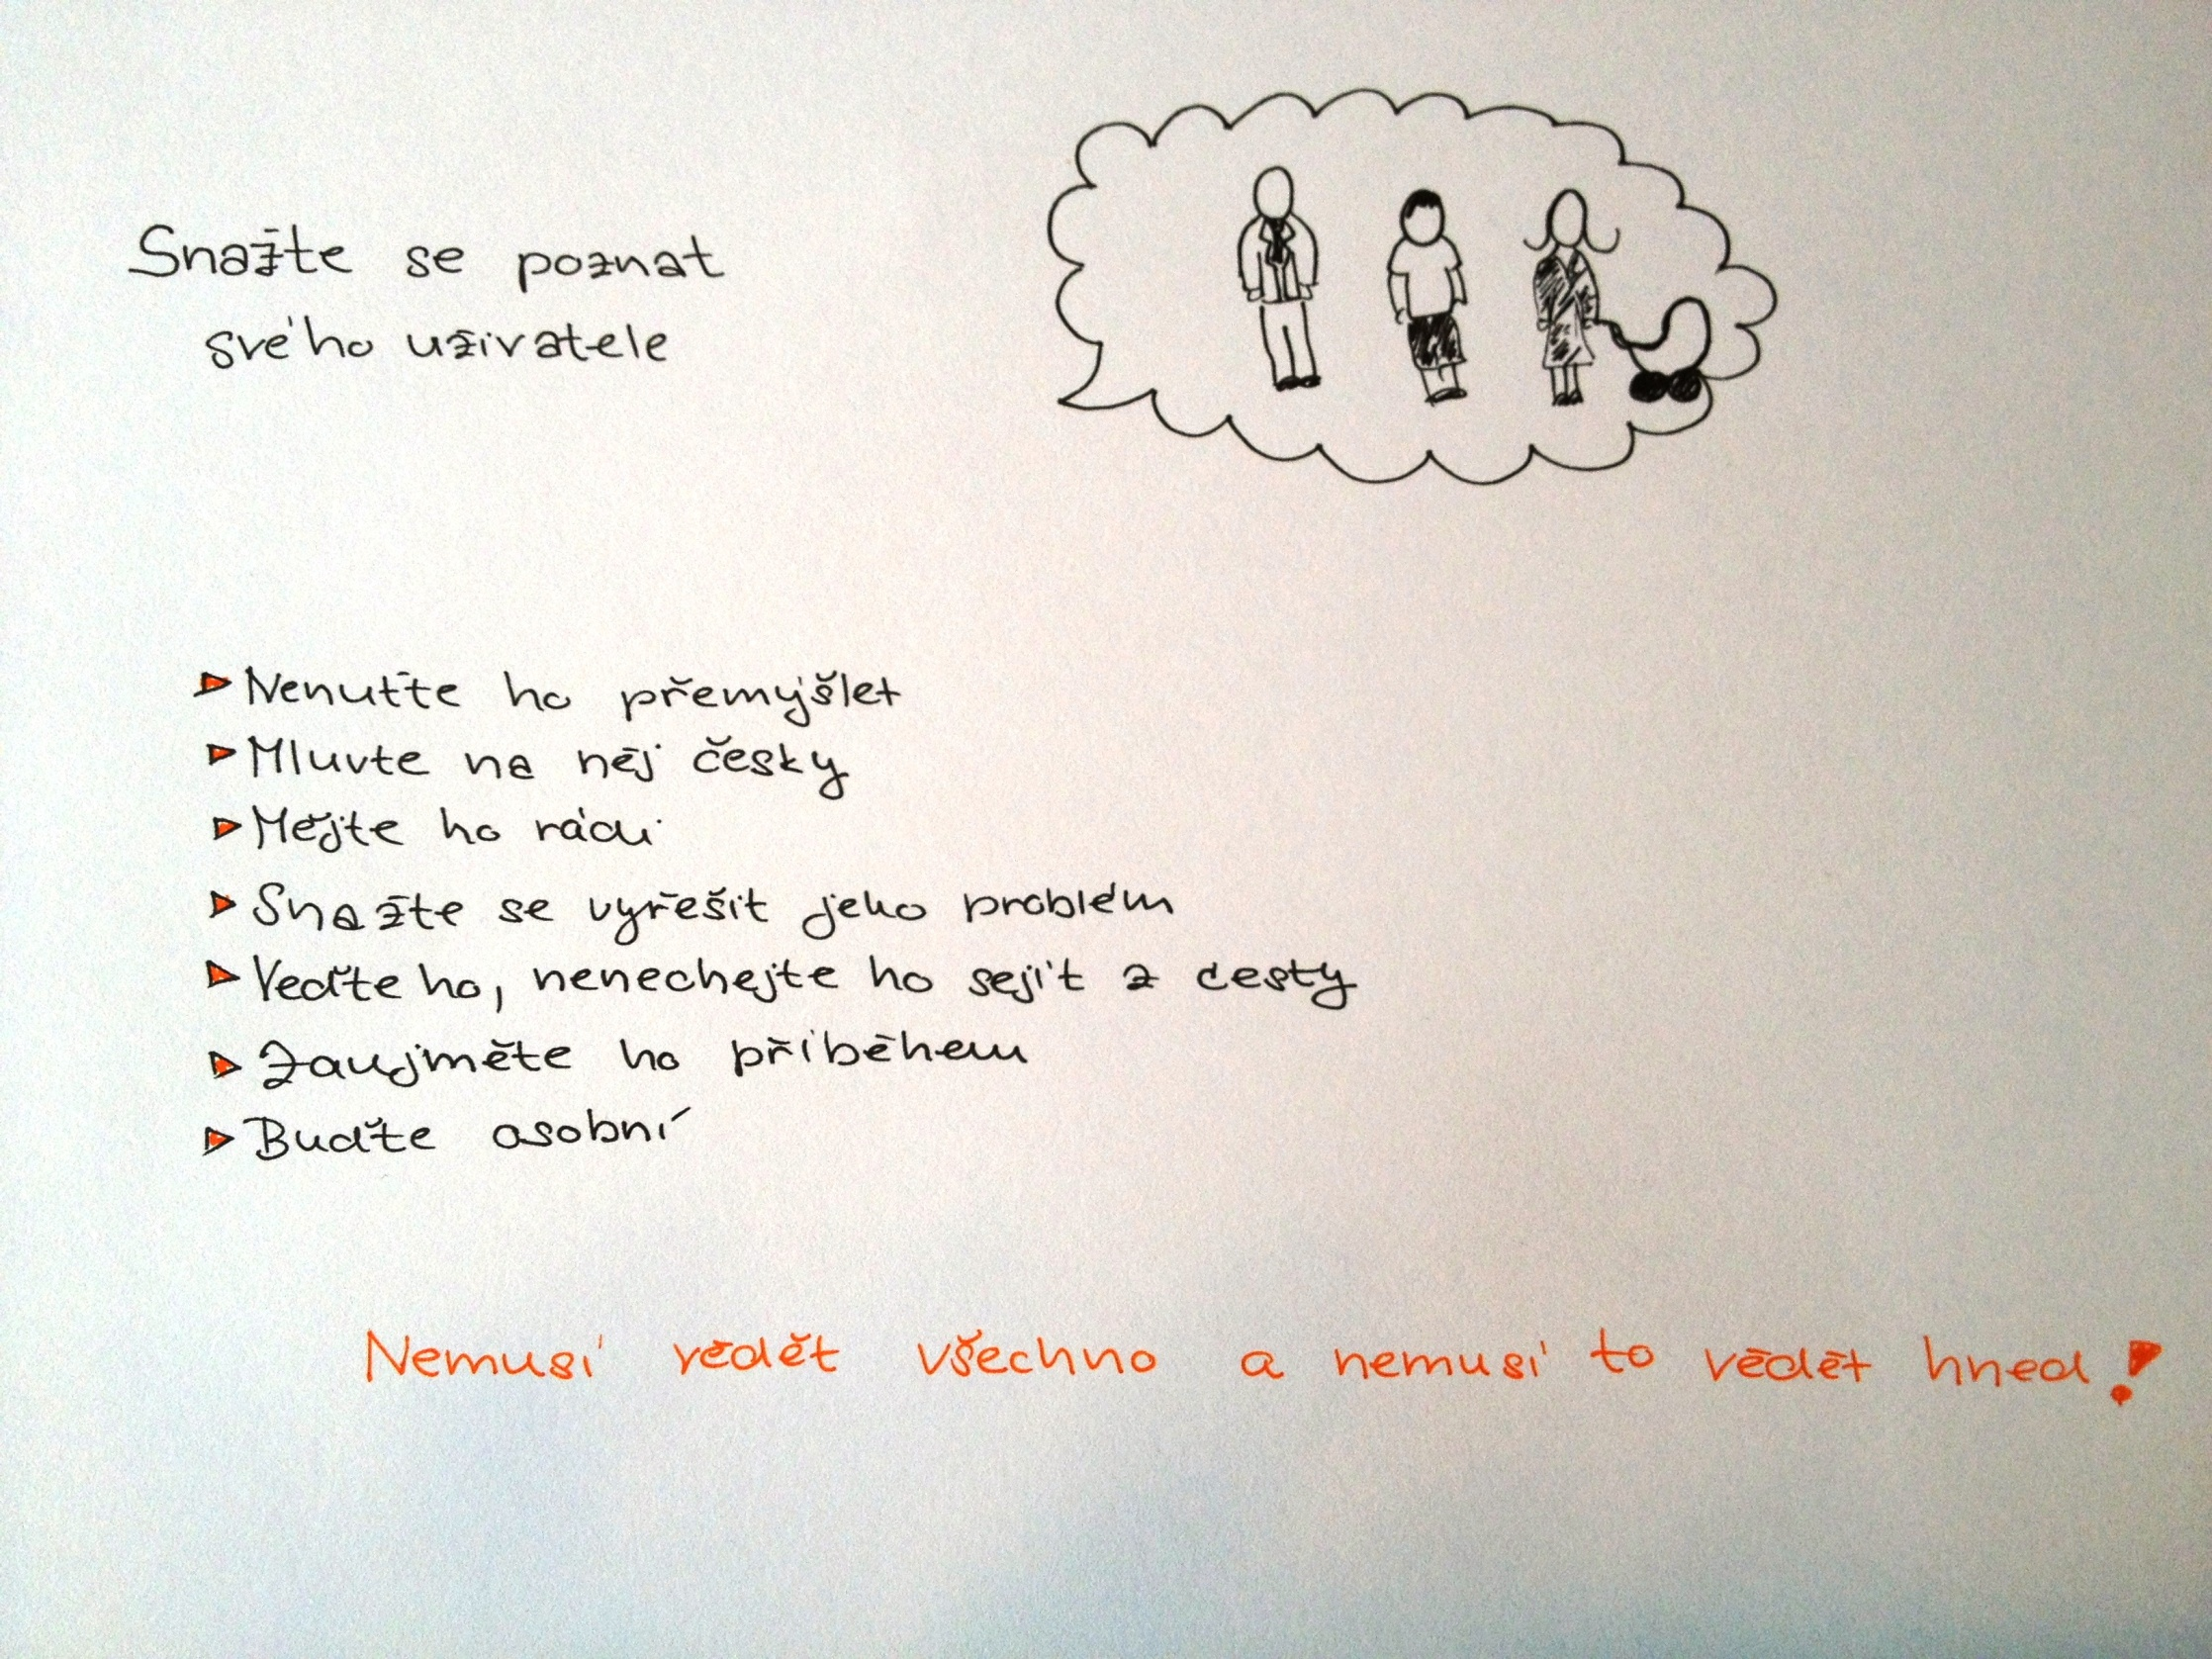 Snažte se poznat
svého uživatele
Nenuťte ho přemýšlet
Mluvte na něj česky
Mějte ho rádi
Snažte se vyřešit jeho problém
Veďte ho, nenechejte ho sejít z cesty
Zaujměte ho příběhem
Buďte osobní
Nemusí vědět všechno a nemusí to vědět hned!